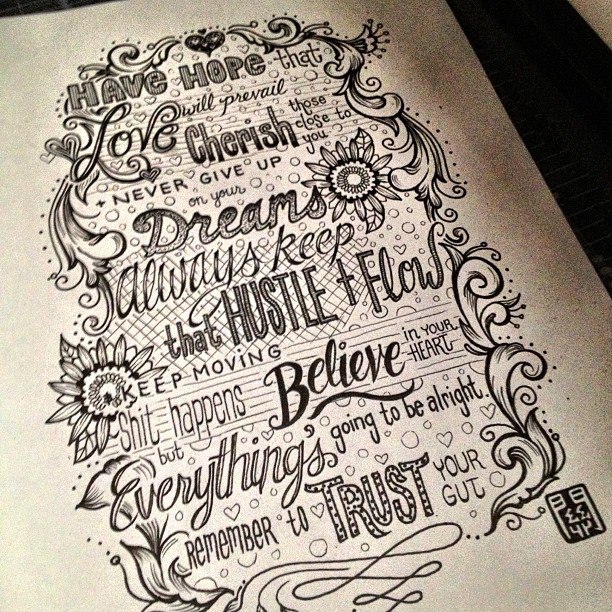 HAVE HOPE that
Love will prevail
Cherish those close to you
+ NEVER GIVE UP
on your
Dreams
always keep
that HUSTLE + Flow
KEEP MOVING
shit happens Believe IN YOUR HEART
but
Everything's going to be alright.
REMEMBER to TRUST YOUR GUT